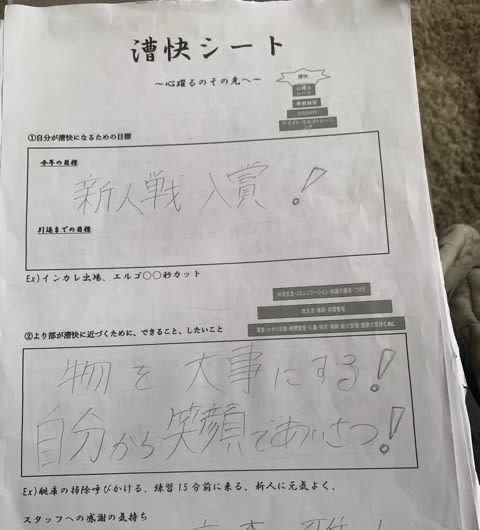 漕快シート
～心躍るのその先へ～
漕快
心躍る
レース
乗艇練習
ウエイト・エルゴトレーニ
ング
①自分が漕快になるための目標
今年の目標
新人戦 入賞!
引退までの目標
Ex)インカレ出場、エルゴ〇〇秒カット
②より部が漕快に近づくために、できること、したいこと
物を大事にする!
自分から笑顔であいさつ!
Ex)艇庫の掃除呼びかける、練習15分前に来る、新人に元気よく、
スタッフへの感謝の気持ち